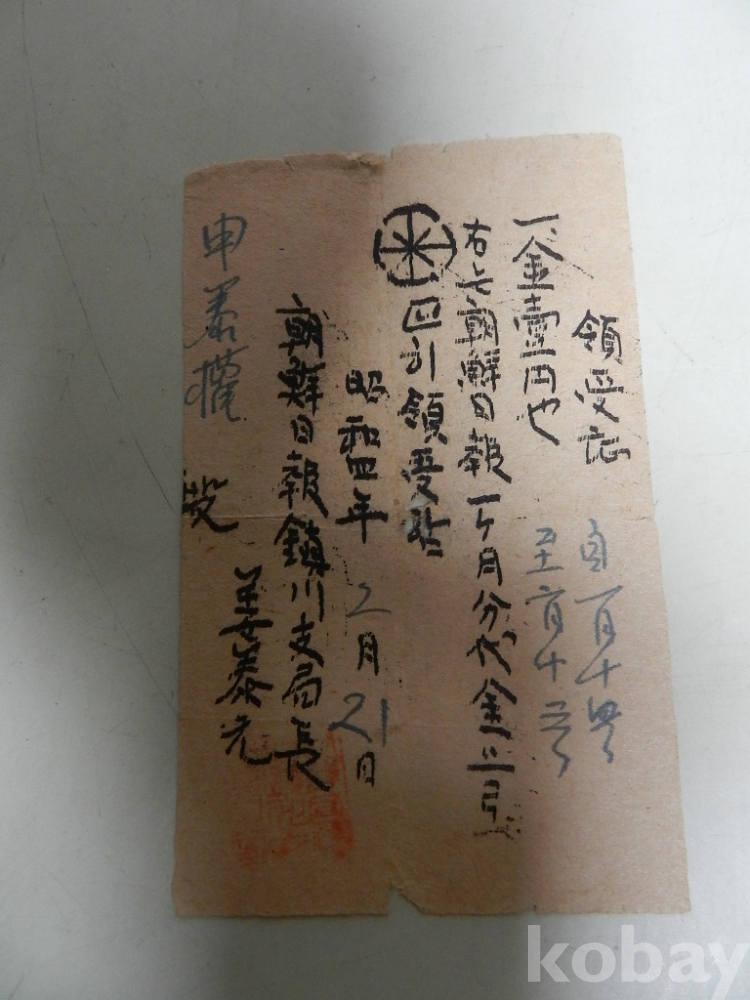 領受証
自一月十四号
至二月十三号
一、金壹円也
右と朝鮮日報一ヶ月分代金으로
正히領受함
昭和四年2月21日
朝鮮日報鎭川支局長
姜泰元
申泰權 殿
kobay